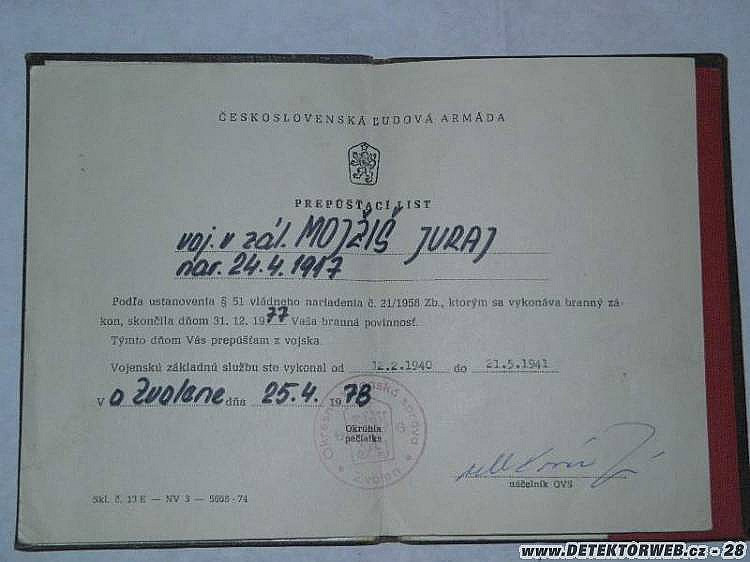 ČESKOSLOVENSKÁ ĽUDOVÁ ARMÁDA
PREPÚŠŤACÍ LIST
voj. v zál. MOJŽIŠ JURAJ
nar. 24.4.1917
Podľa ustanovenia § 51 vládneho nariadenia č. 21/1958 Zb., ktorým sa vykonáva branný zá-
kon, skončila dňom 31. 12. 1977 Vaša branná povinnosť.
Týmto dňom Vás prepúšťam z vojska.
Vojenskú základnú službu ste vykonal od 12.2.1940 do 21.5.1941
V o Zvolene dňa 25.4. 1978
Okrúhla
pečiatka
Okresná vojenská správa
Zvolen
náčelník OVS
Skl. č. 13 E — NV 3 — 5668-74
www.DETEKTORWEB.cz - 28